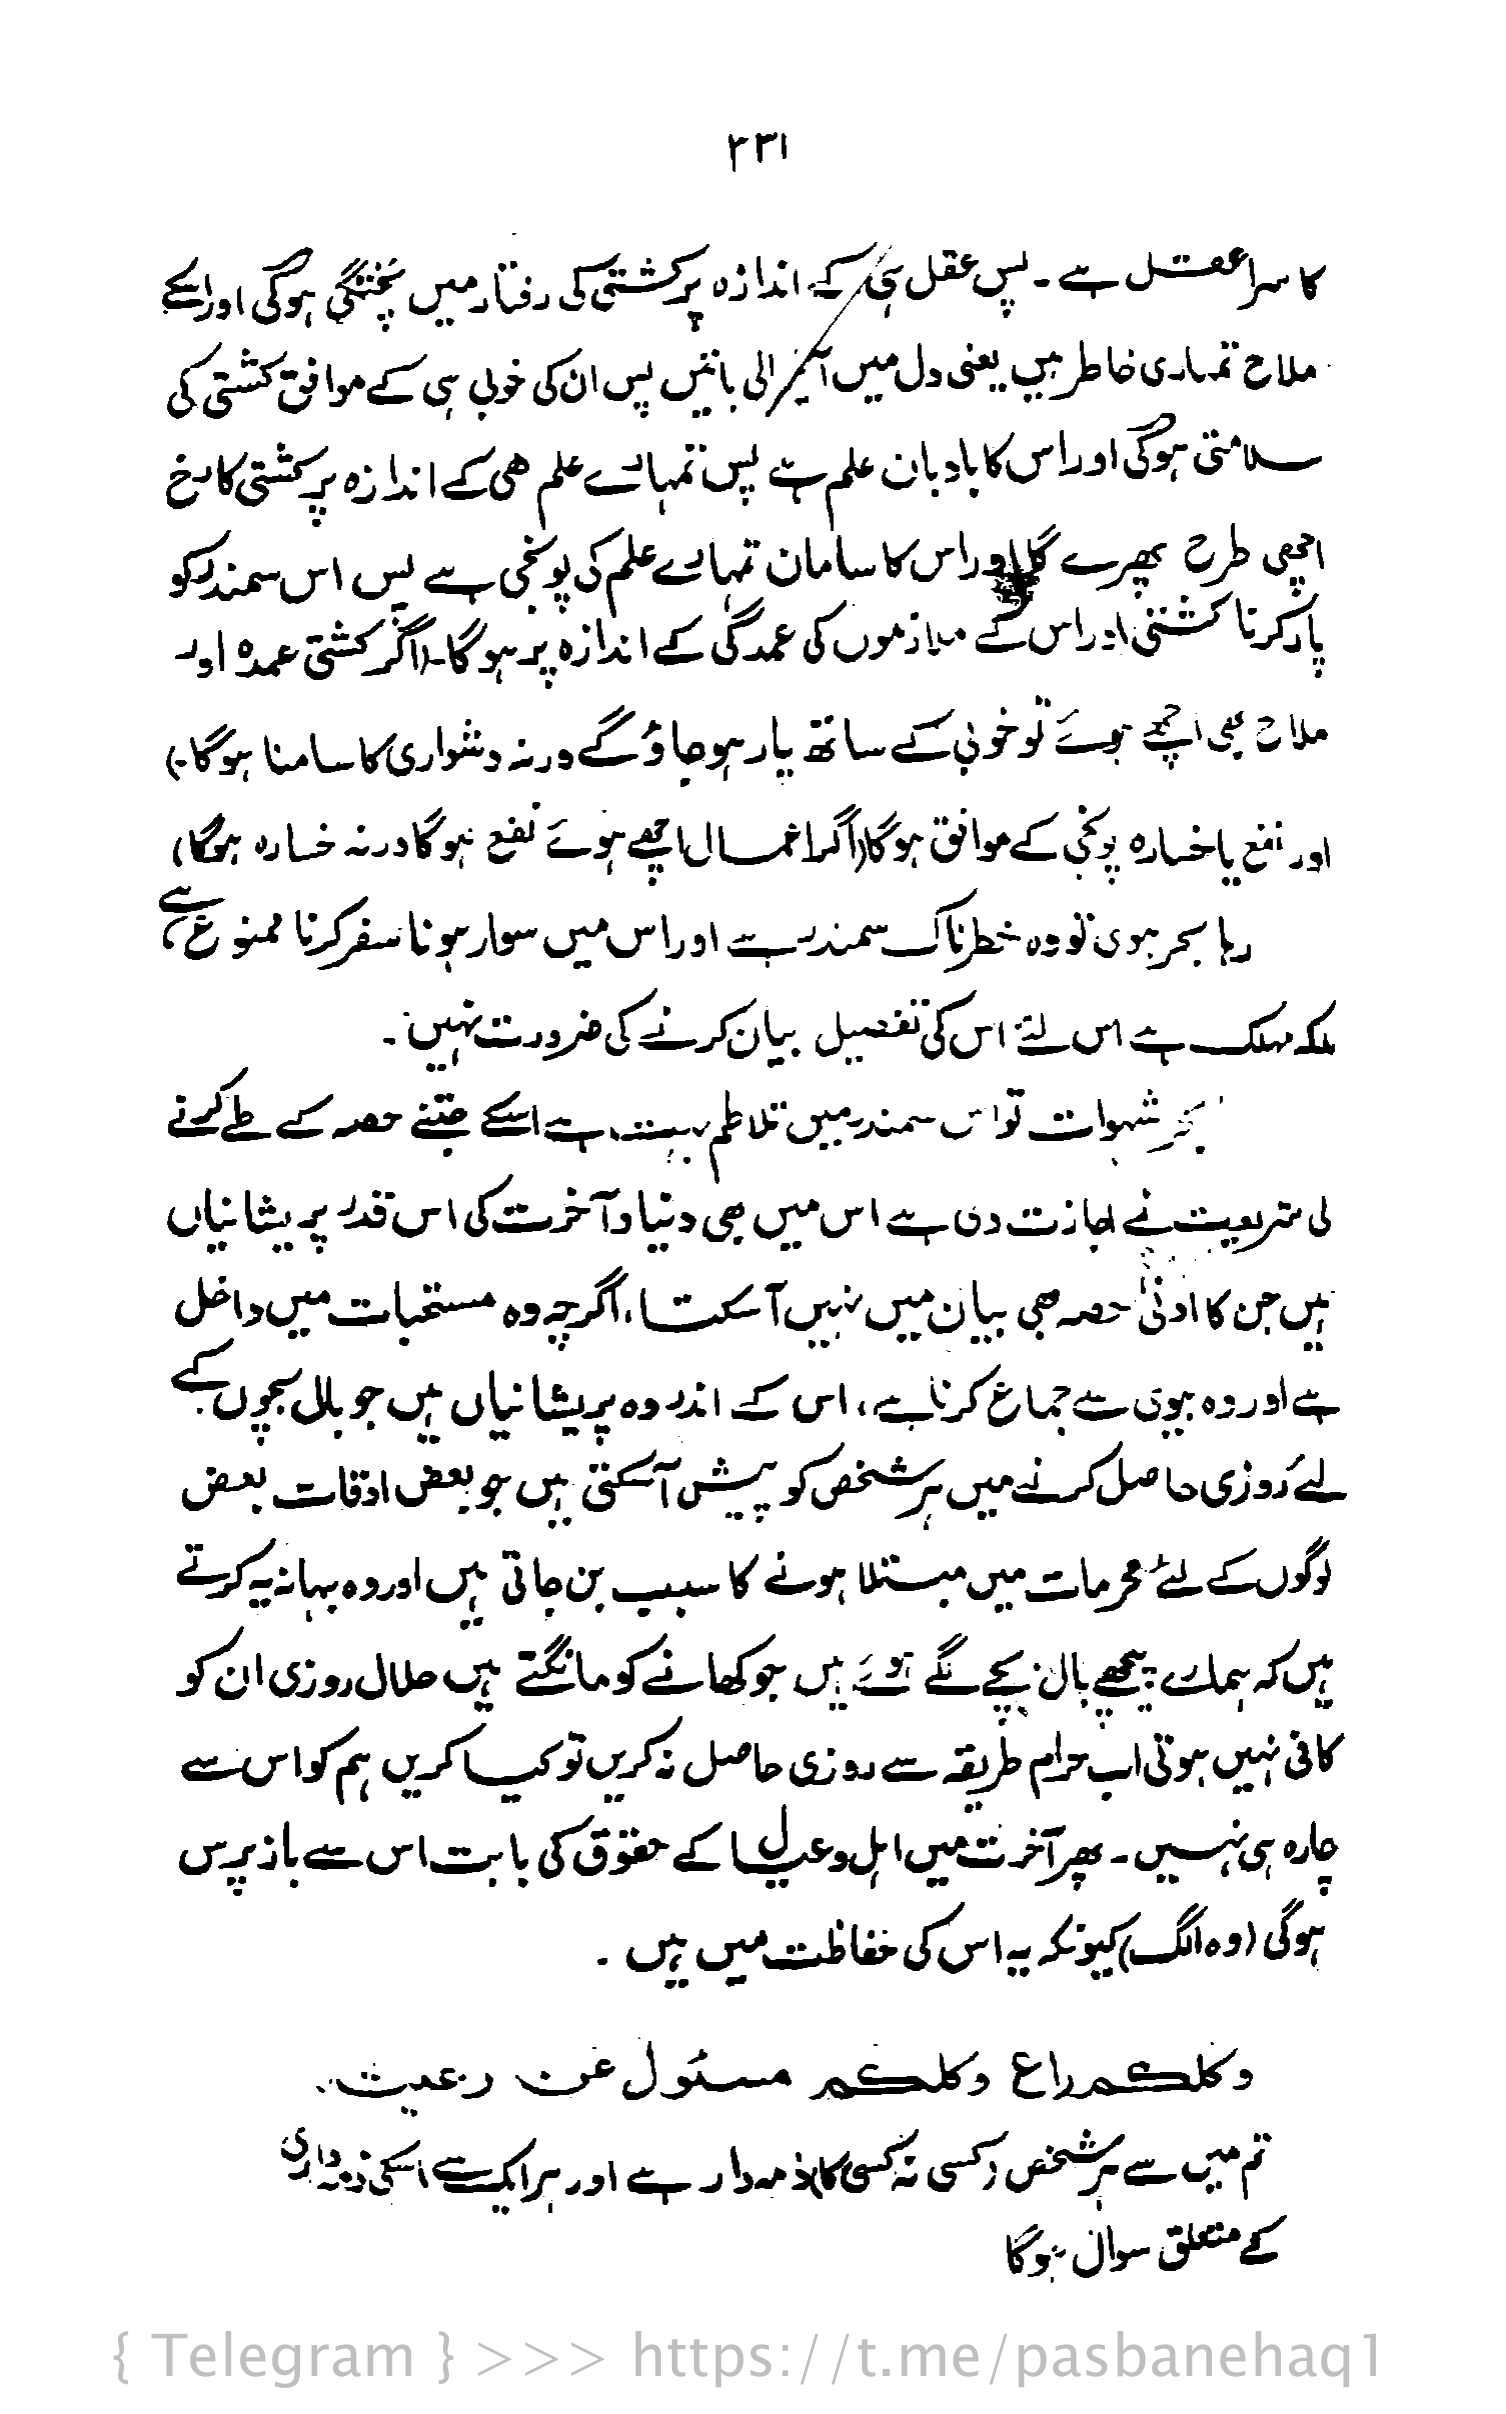 ۲۳۱
کا سرا عقل ہے۔ پس عقل ہی کے اندازہ پر کشتی کی رفتار میں پختگی ہوگی اور اسکے
ملاح تمہاری خاطر ہیں یعنی دل میں آنیوالی باتیں پس ان کی خوبی ہی کے موافق کشتی کی
سلامتی ہوگی اور اس کا بادبان علم ہے پس تمہارے علم ھی کے اندازہ پر کشتی کا رخ
اچھی طرح پھرے گا اور اس کا سامان تمہارے علم کی پونجی ہے پس اس سمندر کو
پار کرنا کشتی اور اس کے ملازموں کی عمدگی کے اندازہ پر ہوگا۔ (اگر کشتی عمدہ اور
ملاح بھی اچھے ہوئے تو خوبی کے ساتھ پار ہو جاؤ گے ورنہ دشواری کا سامنا ہوگا۔)
اور نفع یا خسارہ پونجی کے موافق ہوگا (اگر اعمال اچھے ہوئے نفع ہوگا ورنہ خسارہ ہوگا)
رہا بحر ہوی تو وہ خطرناک سمندر ہے اور اس میں سوار ہونا سفر کرنا ممنوع ہے،
بلکہ مہلک ہے اس لئے اس کی تفصیل بیان کرنے کی ضرورت نہیں۔
بحر شہوات تو اس سمندر میں تلاطم بہت ہے اسکے جتنے حصہ کے طے کرنے
کی شریعت نے اجازت دی ہے اس میں بھی دنیا و آخرت کی اس قدر پریشانیاں
ہیں جن کا ادنیٰ حصہ بھی بیان میں نہیں آسکتا، اگرچہ وہ مستحبات میں داخل
ہے اور وہ بیوی سے جماع کرنا ہے، اس کے اندر وہ پریشانیاں ہیں جو بال بچوں کے
لئے روزی حاصل کرنے میں ہر شخص کو پیش آسکتی ہیں جو بعض اوقات بعض
لوگوں کے لئے محرمات میں مبتلا ہونے کا سبب بن جاتی ہیں اور وہ بہانہ یہ کرتے
ہیں کہ ہمارے پیچھے بال بچے لگے ہوئے ہیں جو کھانے کو مانگتے ہیں حلال روزی ان کو
کافی نہیں ہوتی اب حرام طریقہ سے روزی حاصل نہ کریں تو کیا کریں ہم کو اس سے
چارہ ہی نہیں۔ پھر آخرت میں اہل و عیال کے حقوق کی بابت اس سے باز پرس
ہوگی (وہ الگ) کیونکہ یہ اس کی حفاظت میں ہیں۔
وکلکم راع وکلکم مسئول عن رعیتہ
تم میں سے ہر شخص (کسی نہ کسی کا) ذمہ دار ہے اور ہر ایک سے اسکی ذمہ داری
کے متعلق سوال ہوگا
{ Telegram } >>> https://t.me/pasbanehaq1